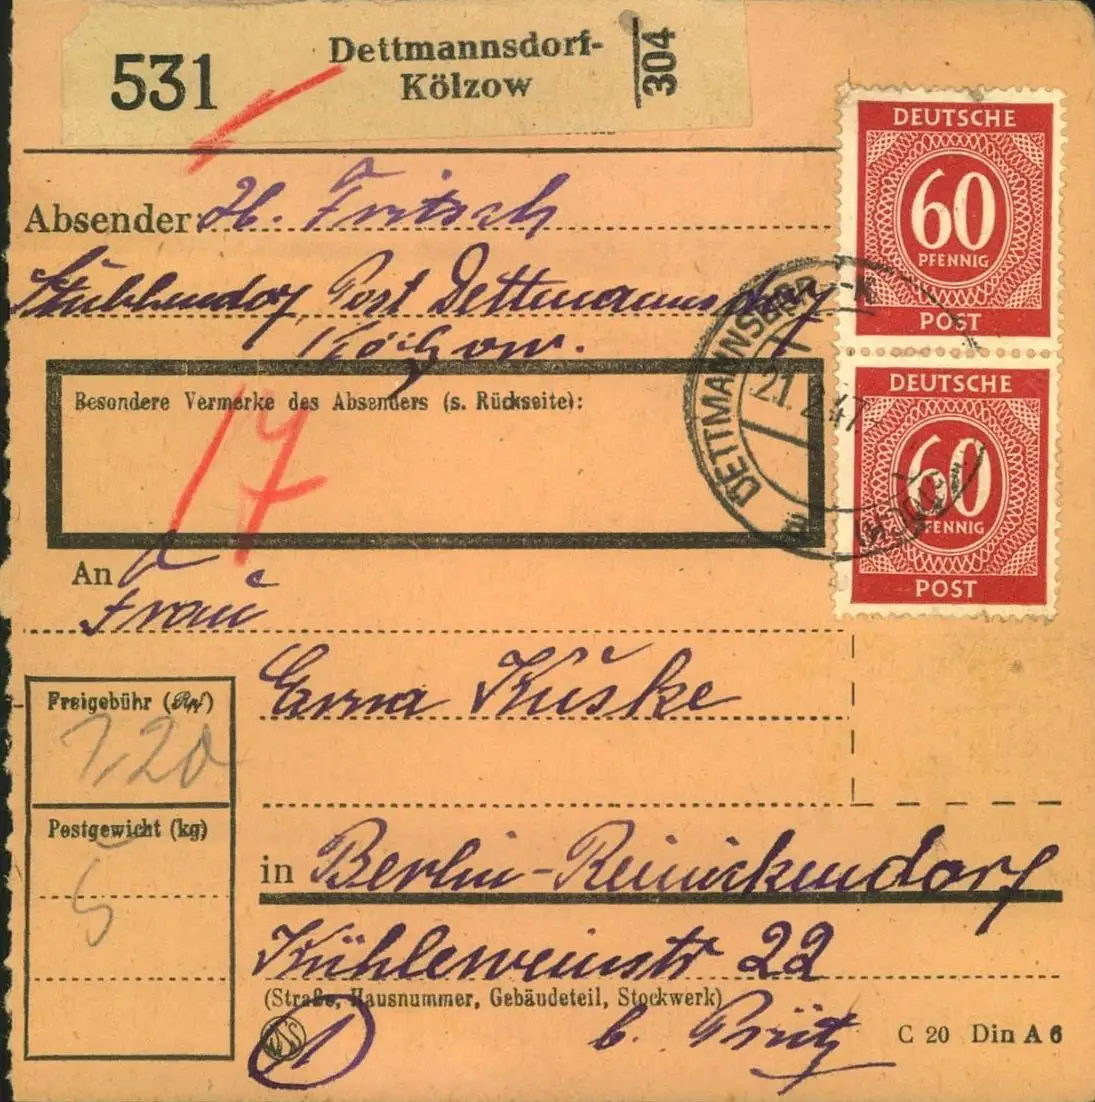 531
Dettmannsdorf-
Kölzow
304
Absender H. Fritsch
Stubbendorf Post Dettmannsdorf
Kölzow.
Besondere Vermerke des Absenders (s. Rückseite):
17
An
Frau
Erna Küske
in Berlin-Reinickendorf
Kühleweinstr 22
(Straße, Hausnummer, Gebäudeteil, Stockwerk)
b. Prütz
1
C 20 Din A 6
Freigebühr (Rpf)
1,20
Postgewicht (kg)
5
DEUTSCHE
60
PFENNIG
POST
DEUTSCHE
60
PFENNIG
POST
DETTMANNSDORF-K
21.2.47